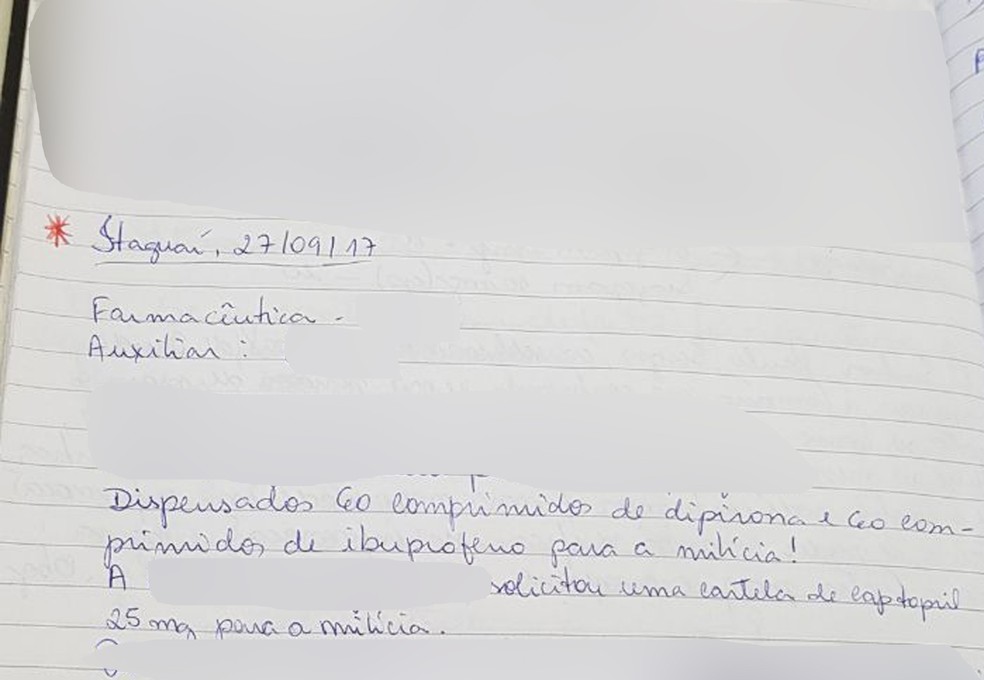 * Itaguaí, 27/09/17
Farmacêutica -
Auxiliar :
Dispensados 60 comprimidos de dipirona e 60 com-
primidos de ibuprofeno para a milícia!
A solicitou uma cartela de captopril
25 mg para a milícia.